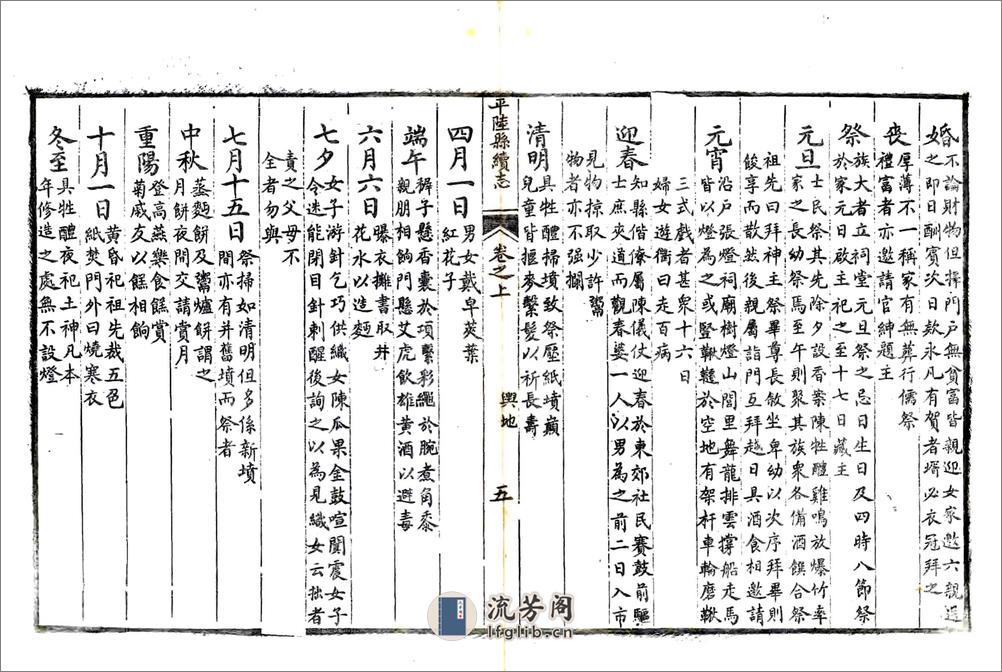 婚不論財物但擇門戶無貧富皆親迎女家邀六親送
女之即日酬賓次日款氷凡有賀者壻必衣冠拜之
喪厚薄不一稱家有無葬行儒祭
禮富者亦邀請官紳題主
祭族大者立祠堂元旦祭之忌日生日及四時八節祭
於家元日啟主祀之至十七日藏主
元旦士民祭其先除夕設香案陳牲醴雞鳴放爆竹率
家之長幼祭焉至午則聚其族衆各備酒饌合祭
祖先曰拜神主祭畢尊長敘坐卑幼以次序拜畢則
餕享而散然後親屬詣門互拜越日具酒食相邀請
元宵沿戶張燈祠廟樹燈山閭里舞龍排雲撐船走馬
皆以燈為之或豎鞦韆於空地有架杆車輪磨鞦
三式戲者甚衆十六日
婦女遊衢曰走百病
迎春知縣偕僚屬陳儀仗迎春於東郊社民賽鼓前驅
士庶夾道而觀春婆一人以男為之前二日入市
見物掠取少許鬻
物者亦不强攔
清明具牲醴掃墳致祭壓紙墳巔
兒童皆摳麥繫髮以祈長壽
平陸縣續志
卷之上
輿地
五
四月一日男女戴皁莢葉
紅花子
端午穉子懸香囊於項繫彩繩於腕煮角黍
親朋相餉門懸艾虎飲雄黄酒以避毒
六月六日曝衣攤書取井
花水以造麵
七夕女子浮針乞巧供織女陳瓜果金鼓喧闐震女子
令迷能閉目針刺醒後詢之以為見織女云拙者
責之父母不
全者勿與
七月十五日祭掃如清明但多係新墳
間亦有并舊墳而祭者
中秋蒸麵餅及鬻爐餅謂之
月餅夜間交請賞月
重陽登高燕樂食餻賞
菊戚友以餻相餉
十月一日黃昏祀祖先裁五色
紙焚門外曰燒寒衣
冬至具牲醴夜祀土神凡本
年修造之處無不設燈
流芳阁
lfglib.cn